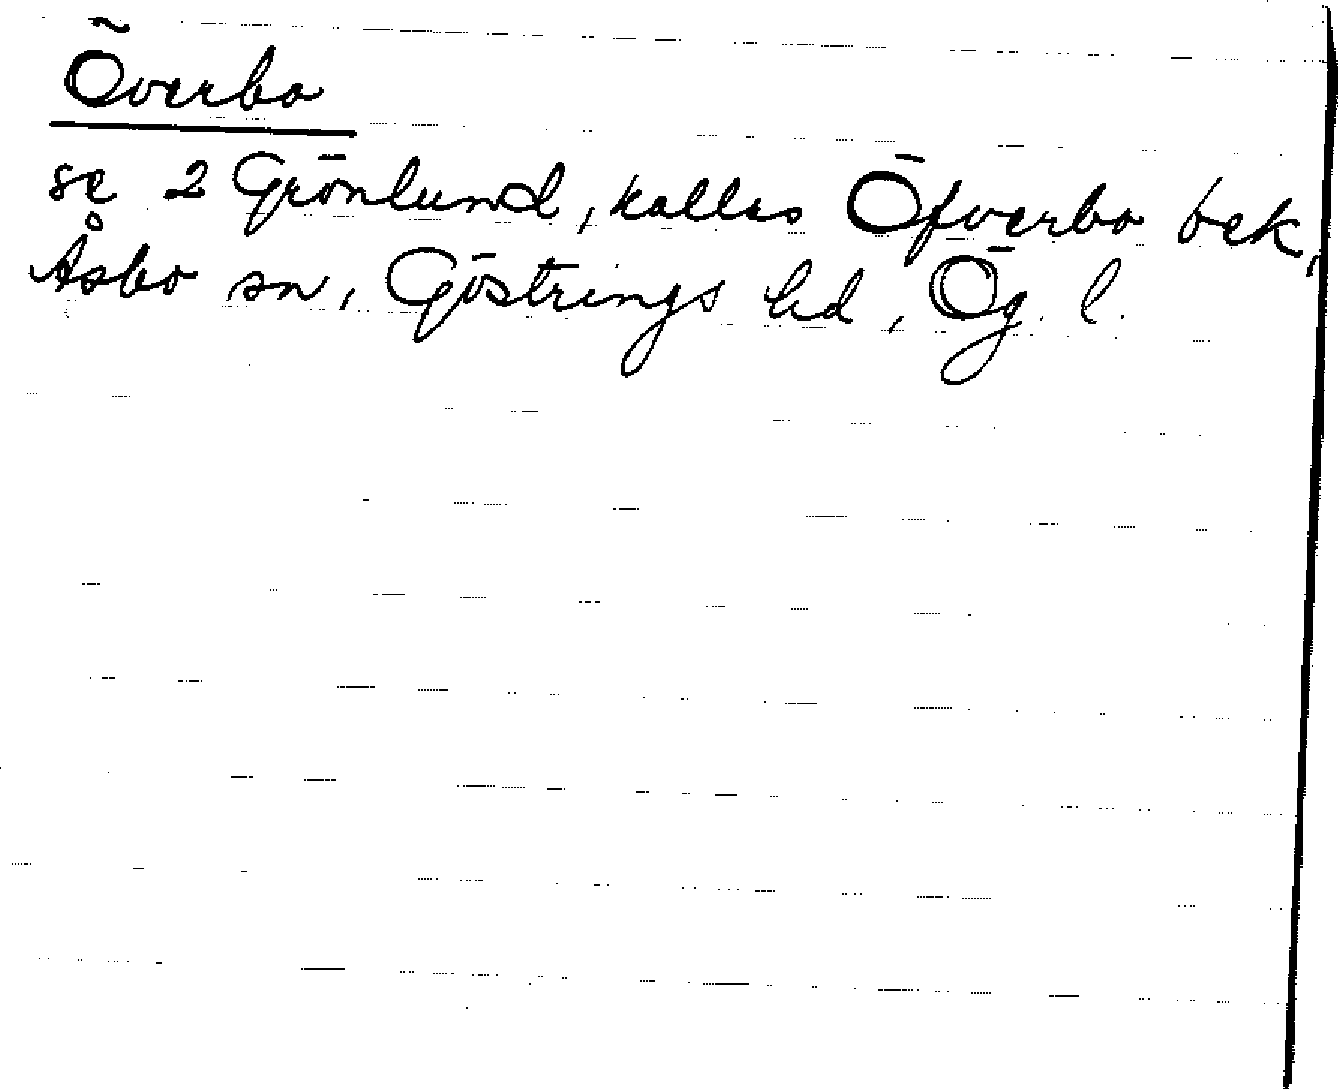 Överbo
se 2 Grönlund, kallas Öfverbo bek,
Åsbo sn, Göstrings hd, Ög. l.